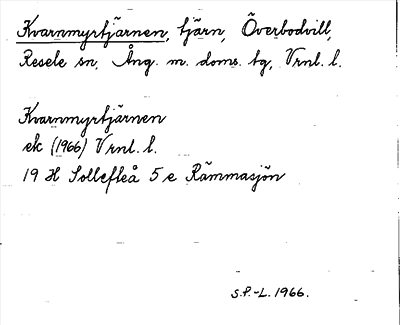 Kvarnmyrtjärnen, tjärn, Överbodvill,
Resele sn, Ång. m. doms. tg, Vrnl. l.
Kvarnmyrtjärnen
ek (1966) Vrnl. l.
19 H Sollefteå 5 e Rämmasjön
S.P.-L. 1966.